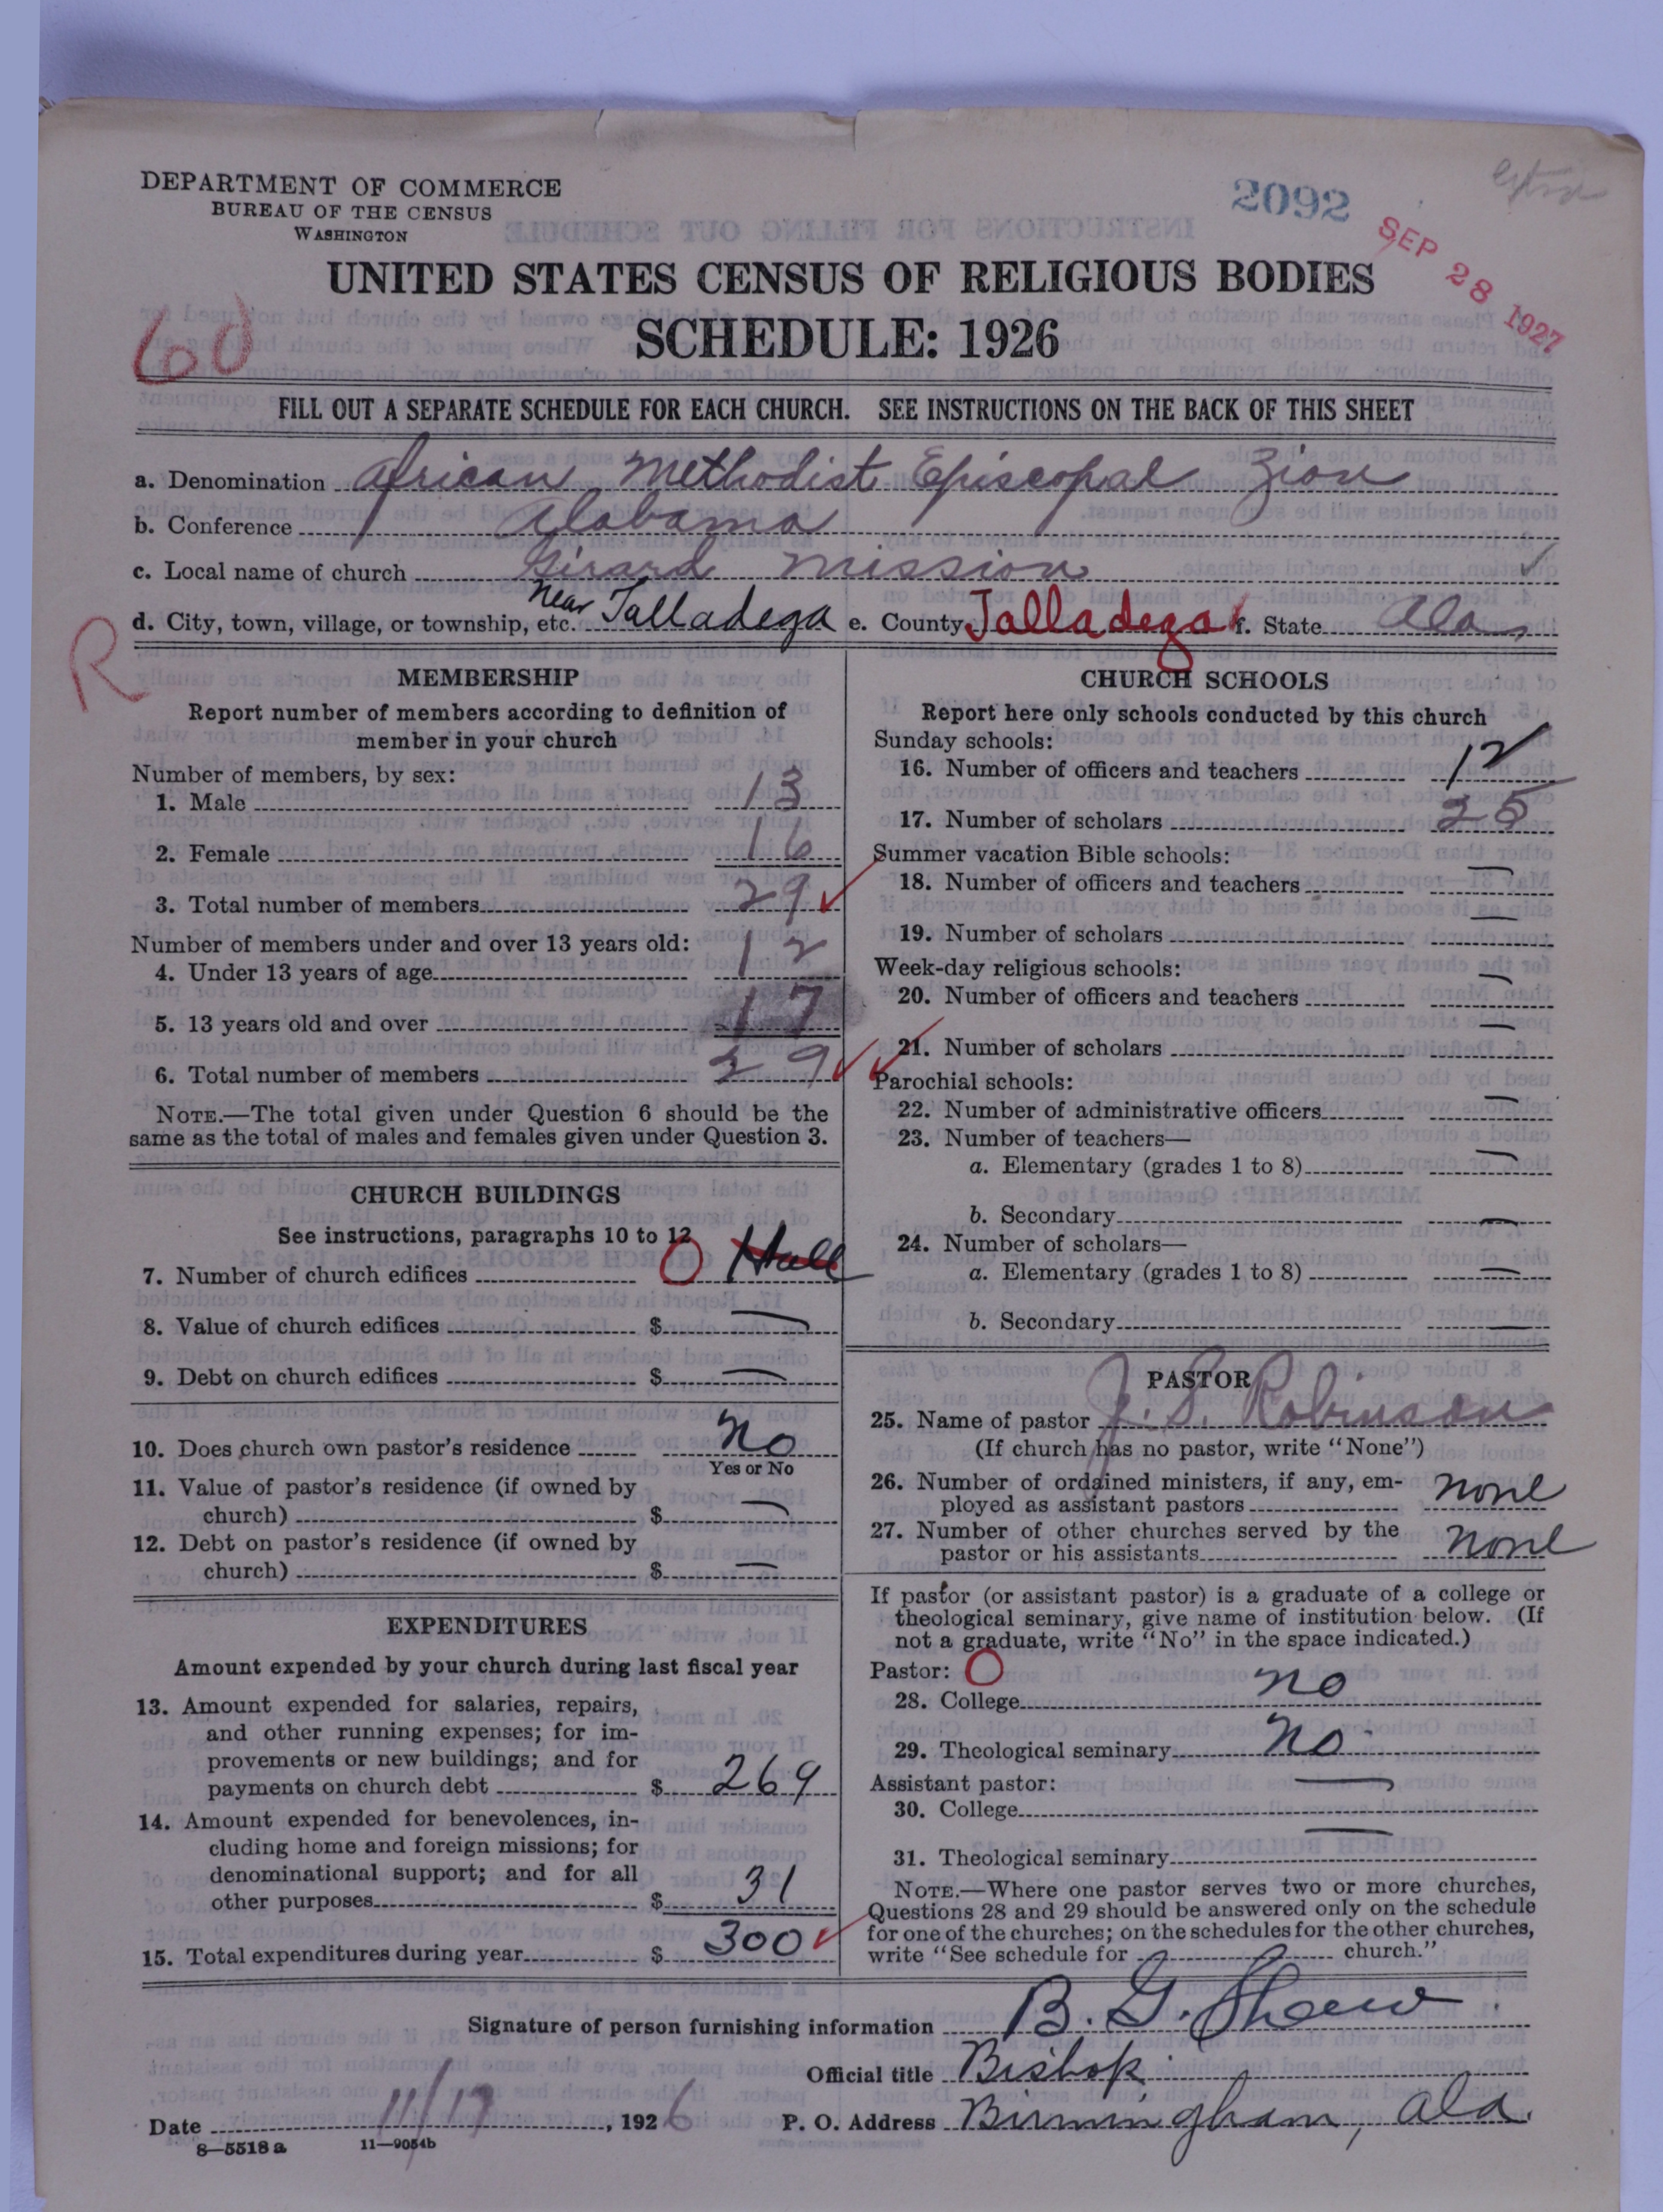 DEPARTMENT OF COMMERCE
BUREAU OF THE CENSUS
WASHINGTON
2092
SEP 28 1927
UNITED STATES CENSUS OF RELIGIOUS BODIES
SCHEDULE: 1926
60
FILL OUT A SEPARATE SCHEDULE FOR EACH CHURCH. SEE INSTRUCTIONS ON THE BACK OF THIS SHEET
a. Denomination African Methodist Episcopal Zion
b. Conference Alabama
c. Local name of church Girard Mission ✓
d. City, town, village, or township, etc. Near Talladega e. County Talladega f. State Ala
R
MEMBERSHIP
Report number of members according to definition of
member in your church
Number of members, by sex:
1. Male 13
2. Female 16
3. Total number of members 29 ✓
Number of members under and over 13 years old:
4. Under 13 years of age 12
5. 13 years old and over 17
6. Total number of members 29 ✓
NOTE.—The total given under Question 6 should be the
same as the total of males and females given under Question 3.
CHURCH BUILDINGS
See instructions, paragraphs 10 to 12
7. Number of church edifices 0 Hall
8. Value of church edifices $ —
9. Debt on church edifices $ —
10. Does church own pastor's residence No
Yes or No
11. Value of pastor's residence (if owned by
church) $ —
12. Debt on pastor's residence (if owned by
church) $ —
EXPENDITURES
Amount expended by your church during last fiscal year
13. Amount expended for salaries, repairs,
and other running expenses; for im-
provements or new buildings; and for
payments on church debt $ 269
14. Amount expended for benevolences, in-
cluding home and foreign missions; for
denominational support; and for all
other purposes $ 31
15. Total expenditures during year $ 300 ✓
CHURCH SCHOOLS
Report here only schools conducted by this church
Sunday schools:
16. Number of officers and teachers 12
17. Number of scholars 25
Summer vacation Bible schools:
18. Number of officers and teachers —
19. Number of scholars —
Week-day religious schools:
20. Number of officers and teachers —
21. Number of scholars —
Parochial schools:
22. Number of administrative officers —
23. Number of teachers—
a. Elementary (grades 1 to 8) —
b. Secondary —
24. Number of scholars—
a. Elementary (grades 1 to 8) —
b. Secondary —
PASTOR
25. Name of pastor J. S. Robinson
(If church has no pastor, write "None")
26. Number of ordained ministers, if any, em-
ployed as assistant pastors none
27. Number of other churches served by the
pastor or his assistants none
If pastor (or assistant pastor) is a graduate of a college or
theological seminary, give name of institution below. (If
not a graduate, write "No" in the space indicated.)
Pastor: 0
28. College no
29. Theological seminary no
Assistant pastor:
30. College —
31. Theological seminary —
NOTE.—Where one pastor serves two or more churches,
Questions 28 and 29 should be answered only on the schedule
for one of the churches; on the schedules for the other churches,
write "See schedule for church."
Signature of person furnishing information B. G. Shaw
Official title Bishop
Date 11/17, 1926 P. O. Address Birmingham, Ala.
8—5518 a 11—9054b